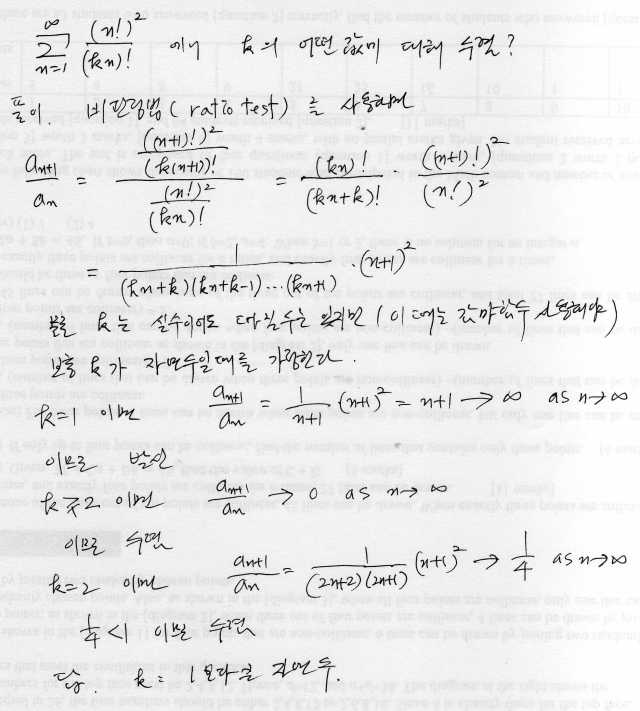 ∞ Σ n=1 (n!)² / (kn)! 에서 k의 어떤 값에 대해 수렴?
풀이. 비판정법 (ratio test) 을 사용하면
a_{n+1} / a_n = {((n+1)!)² / (k(n+1))!} / {(n!)² / (kn)!} = (kn)! / (kn+k)! · ((n+1)!)² / (n!)²
= 1 / (kn+k)(kn+k-1)⋯(kn+1) · (n+1)²
물론 k는 실수이어도 다룰수는 있지만 (이 때는 감마함수 사용해야)
보통 k가 자연수일때를 가정한다.
k=1 이면 a_{n+1} / a_n = 1 / n+1 · (n+1)² = n+1 → ∞ as n→∞
이므로 발산
k>2 이면 a_{n+1} / a_n → 0 as n→∞
이므로 수렴
k=2 이면 a_{n+1} / a_n = 1 / (2n+2)(2n+1) (n+1)² → 1/4 as n→∞
1/4 < 1 이므로 수렴
답. k = 1보다 큰 자연수.